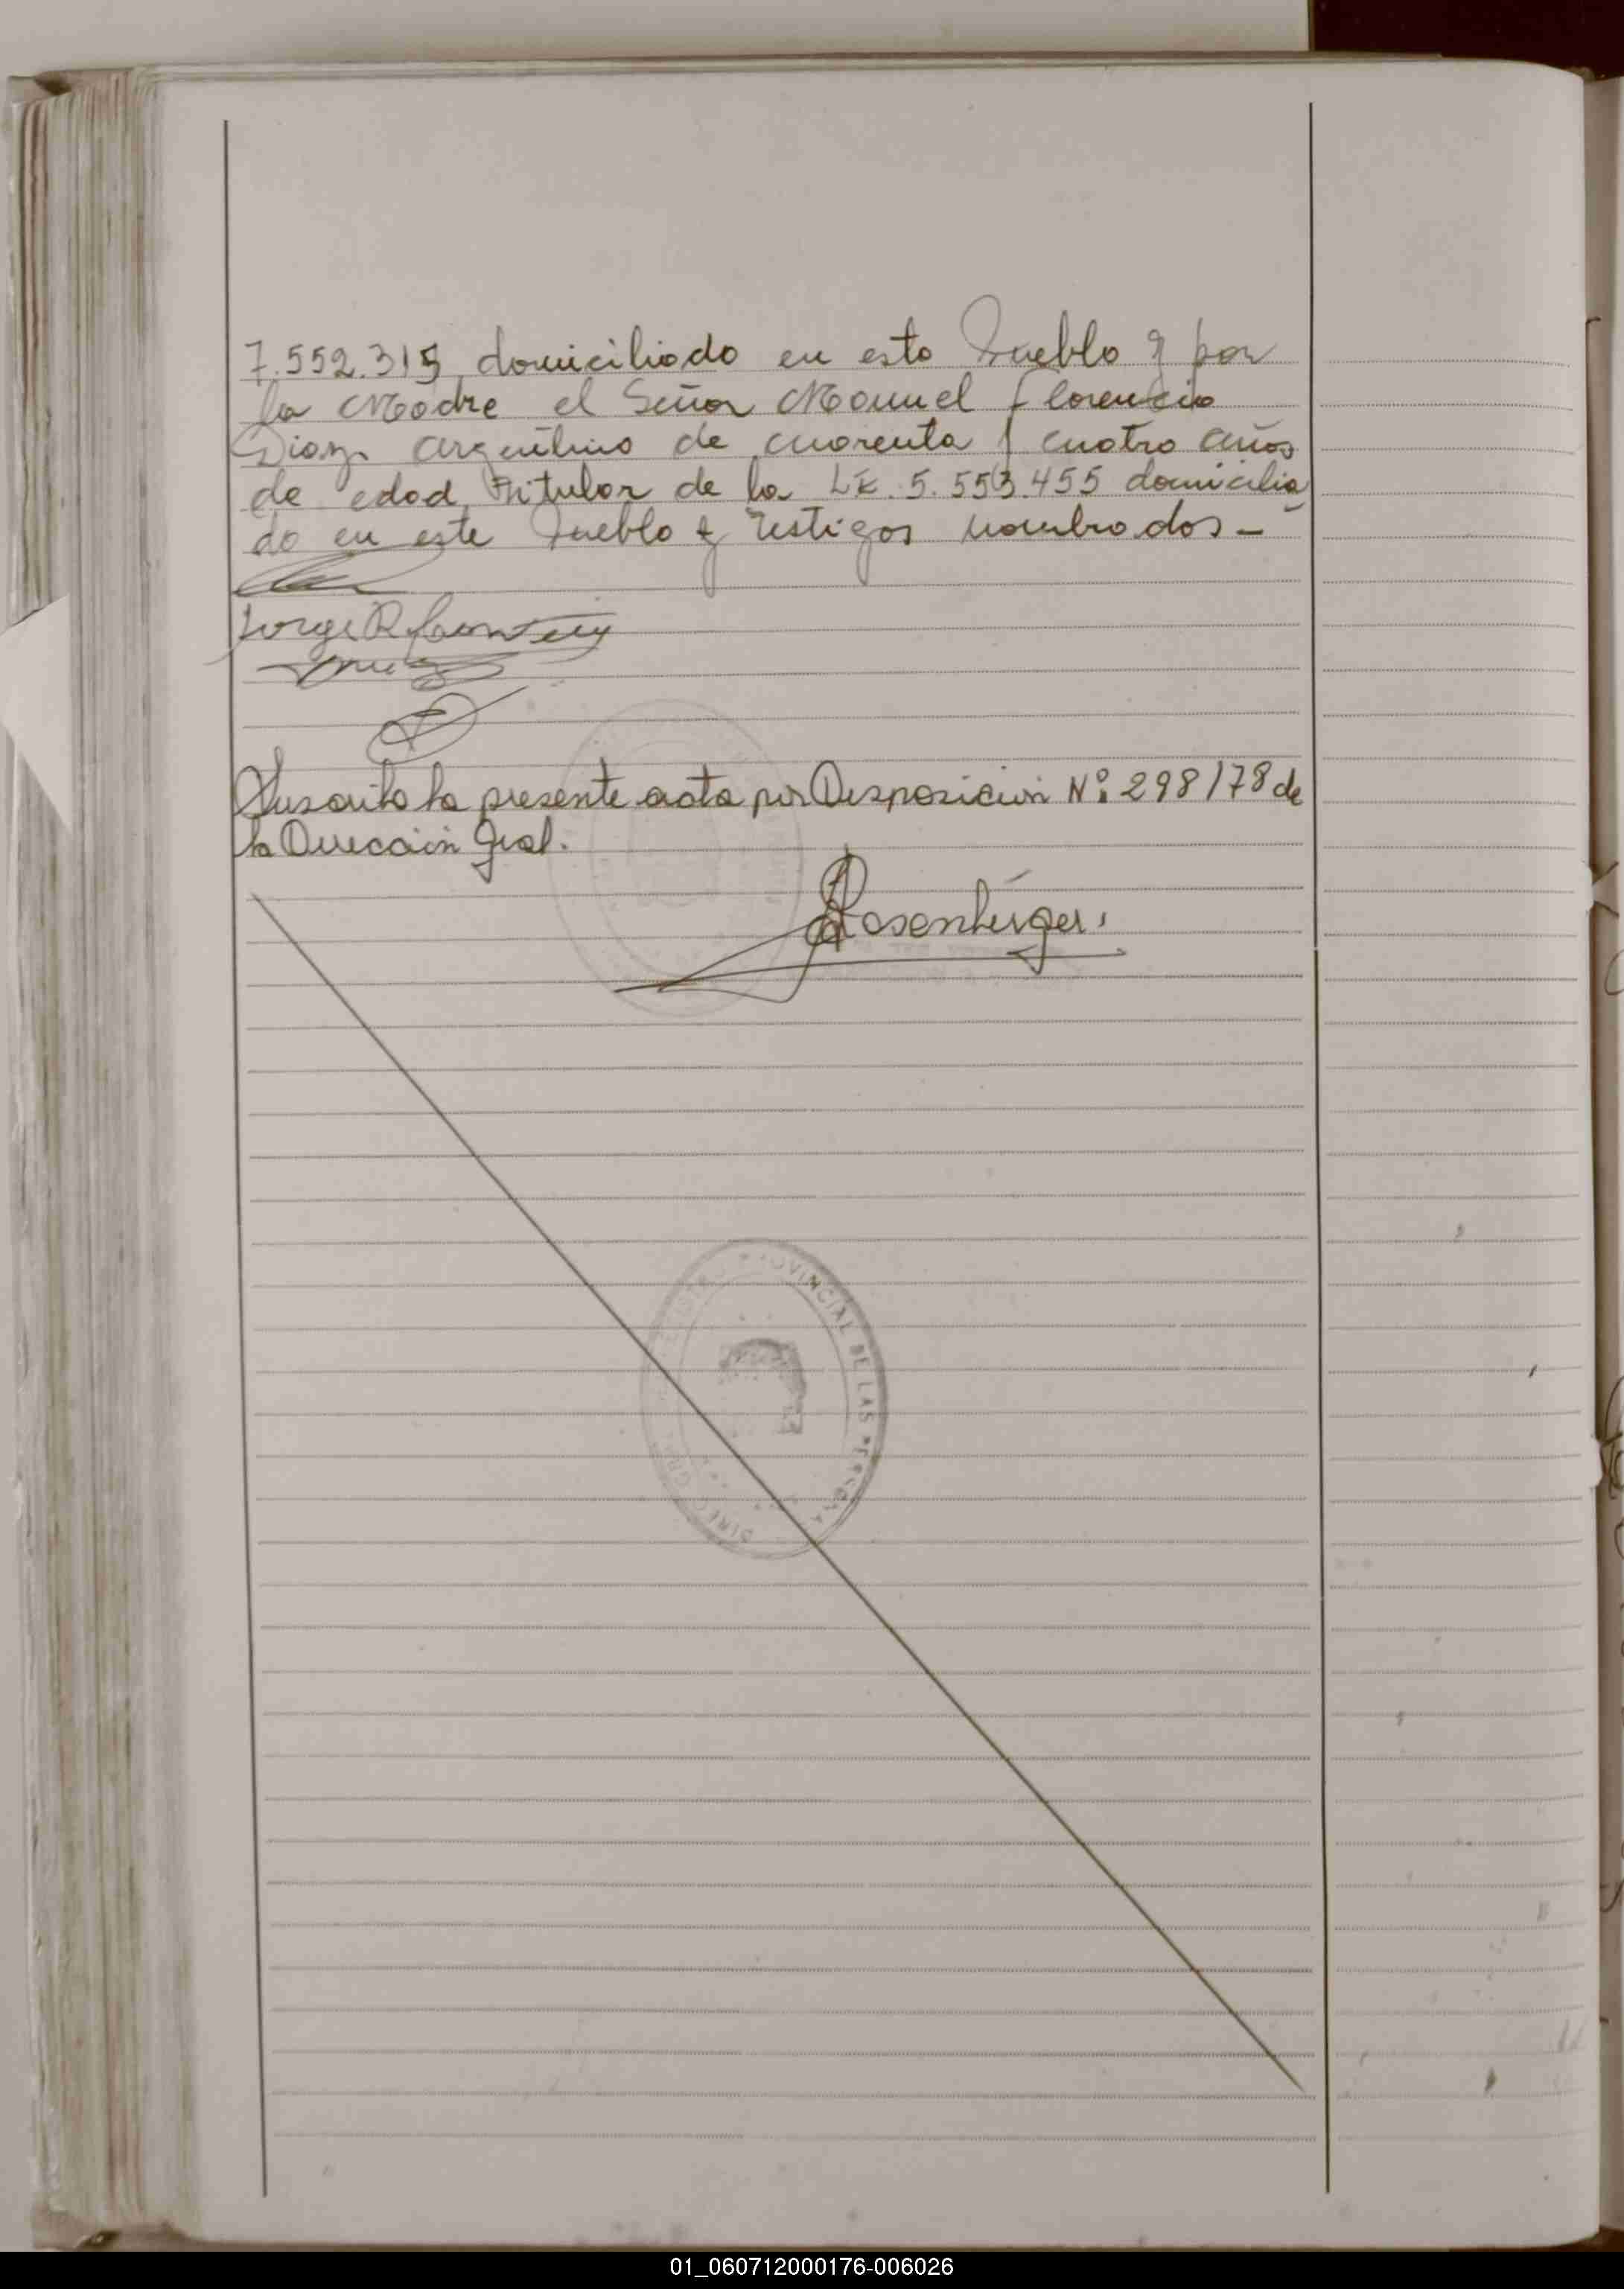 7.552.315, domiciliado en esto Pueblo y por
la Madre el Señor Manuel Florencio
Diaz argentino de cuarenta y cuatro años
de edad, titular de la LE. 5.553.455 domicilia
do en este Pueblo y testigos nombrados -
Jorge R.
Suscrita la presente acta por Disposicion Nº 298/78 de
la Direccion Gral.
Rosenberger.
PROVINCIAL DE LAS PERSONAS
DIREC GRAL
01_060712000176-006026